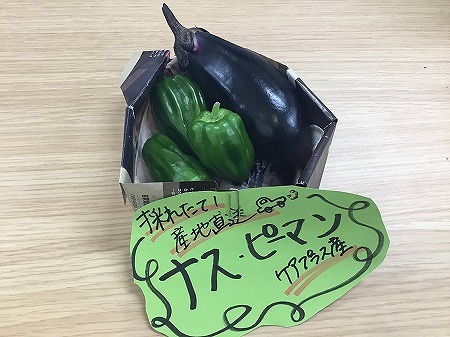 採れたて!
産地直送
ナス・ピーマン
ケアプラス産